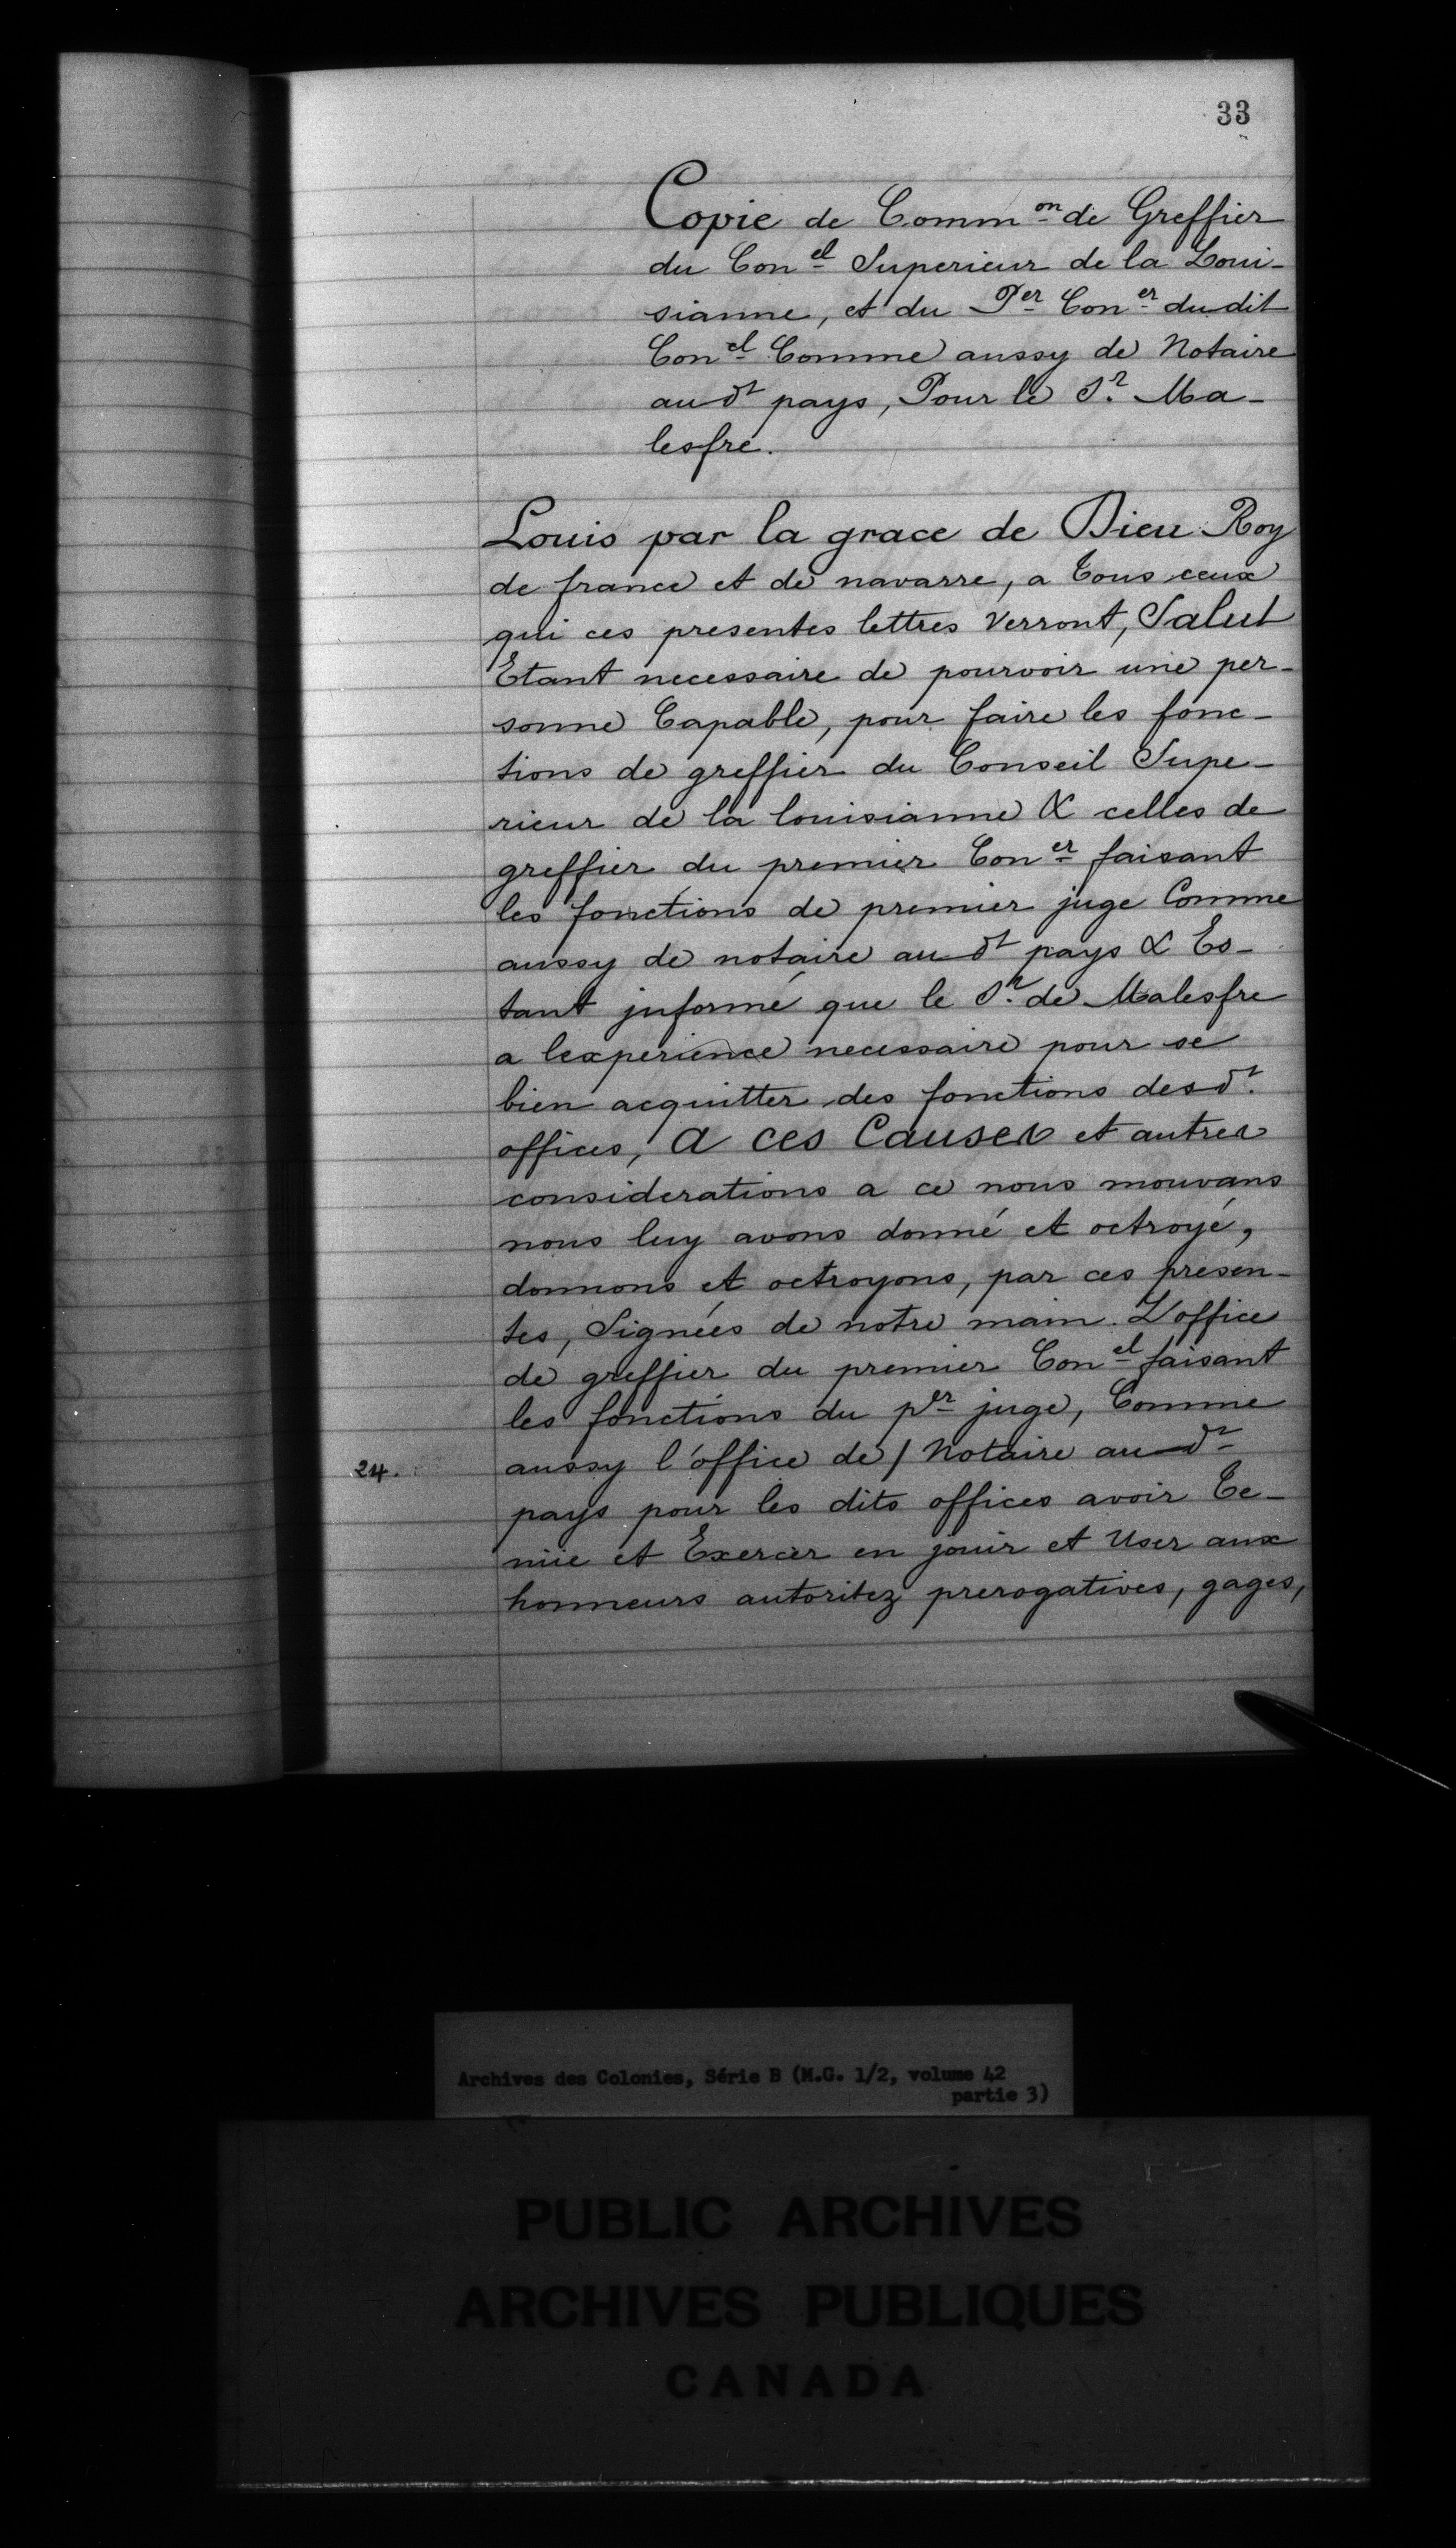 33
Copie de Comm^on de Greffier
du Con^el Superieur de la Loui-
sianne, et du P^er Con^er du dit
Con^el Comme aussy de Notaire
au d^t pays, Pour le S^r. Ma-
lesfre.
Louis par la grace de Dieu Roy
de france et de navarre, a tous ceux
qui ces presentes lettres verront, Salut
Etant necessaire de pourvoir une per-
sonne Capable, pour faire les fonc-
tions de greffier du Conseil Supe-
rieur de la louisianne & celles de
greffier du premier Con^er faisant
les fonctions de premier juge Comme
aussy de notaire au d^t pays & Es-
tant jnformé que le S^r. de Malesfre
a lexperience necessaire pour se
bien acquitter des fonctions desd^t.
offices, a ces Causes et autres
considerations a ce nous mouvans
nous luy avons donné et octroyé,
donnons et octroyons, par ces presen-
tes, Signées de notre main. L'office
de greffier du premier Con^el faisant
les fonctions du p^er juge, Comme
24. aussy l'office de / Notaire au d^t
pays pour les dits offices avoir Te-
niie et Exercer en jouir et User aux
honneurs autoritez prerogatives, gages,
Archives des Colonies, Série B (M.G. 1/2, volume 42
partie 3)
PUBLIC ARCHIVES
ARCHIVES PUBLIQUES
CANADA